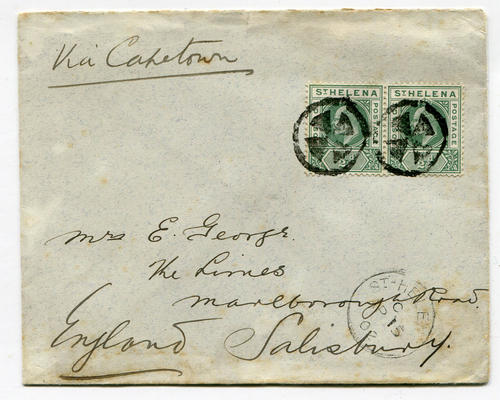 Via Capetown
ST HELENA POSTAGE
ST HELENA POSTAGE
Mrs E. George.
The Limes
Marlborough Road
England Salisbury.
ST HELENA